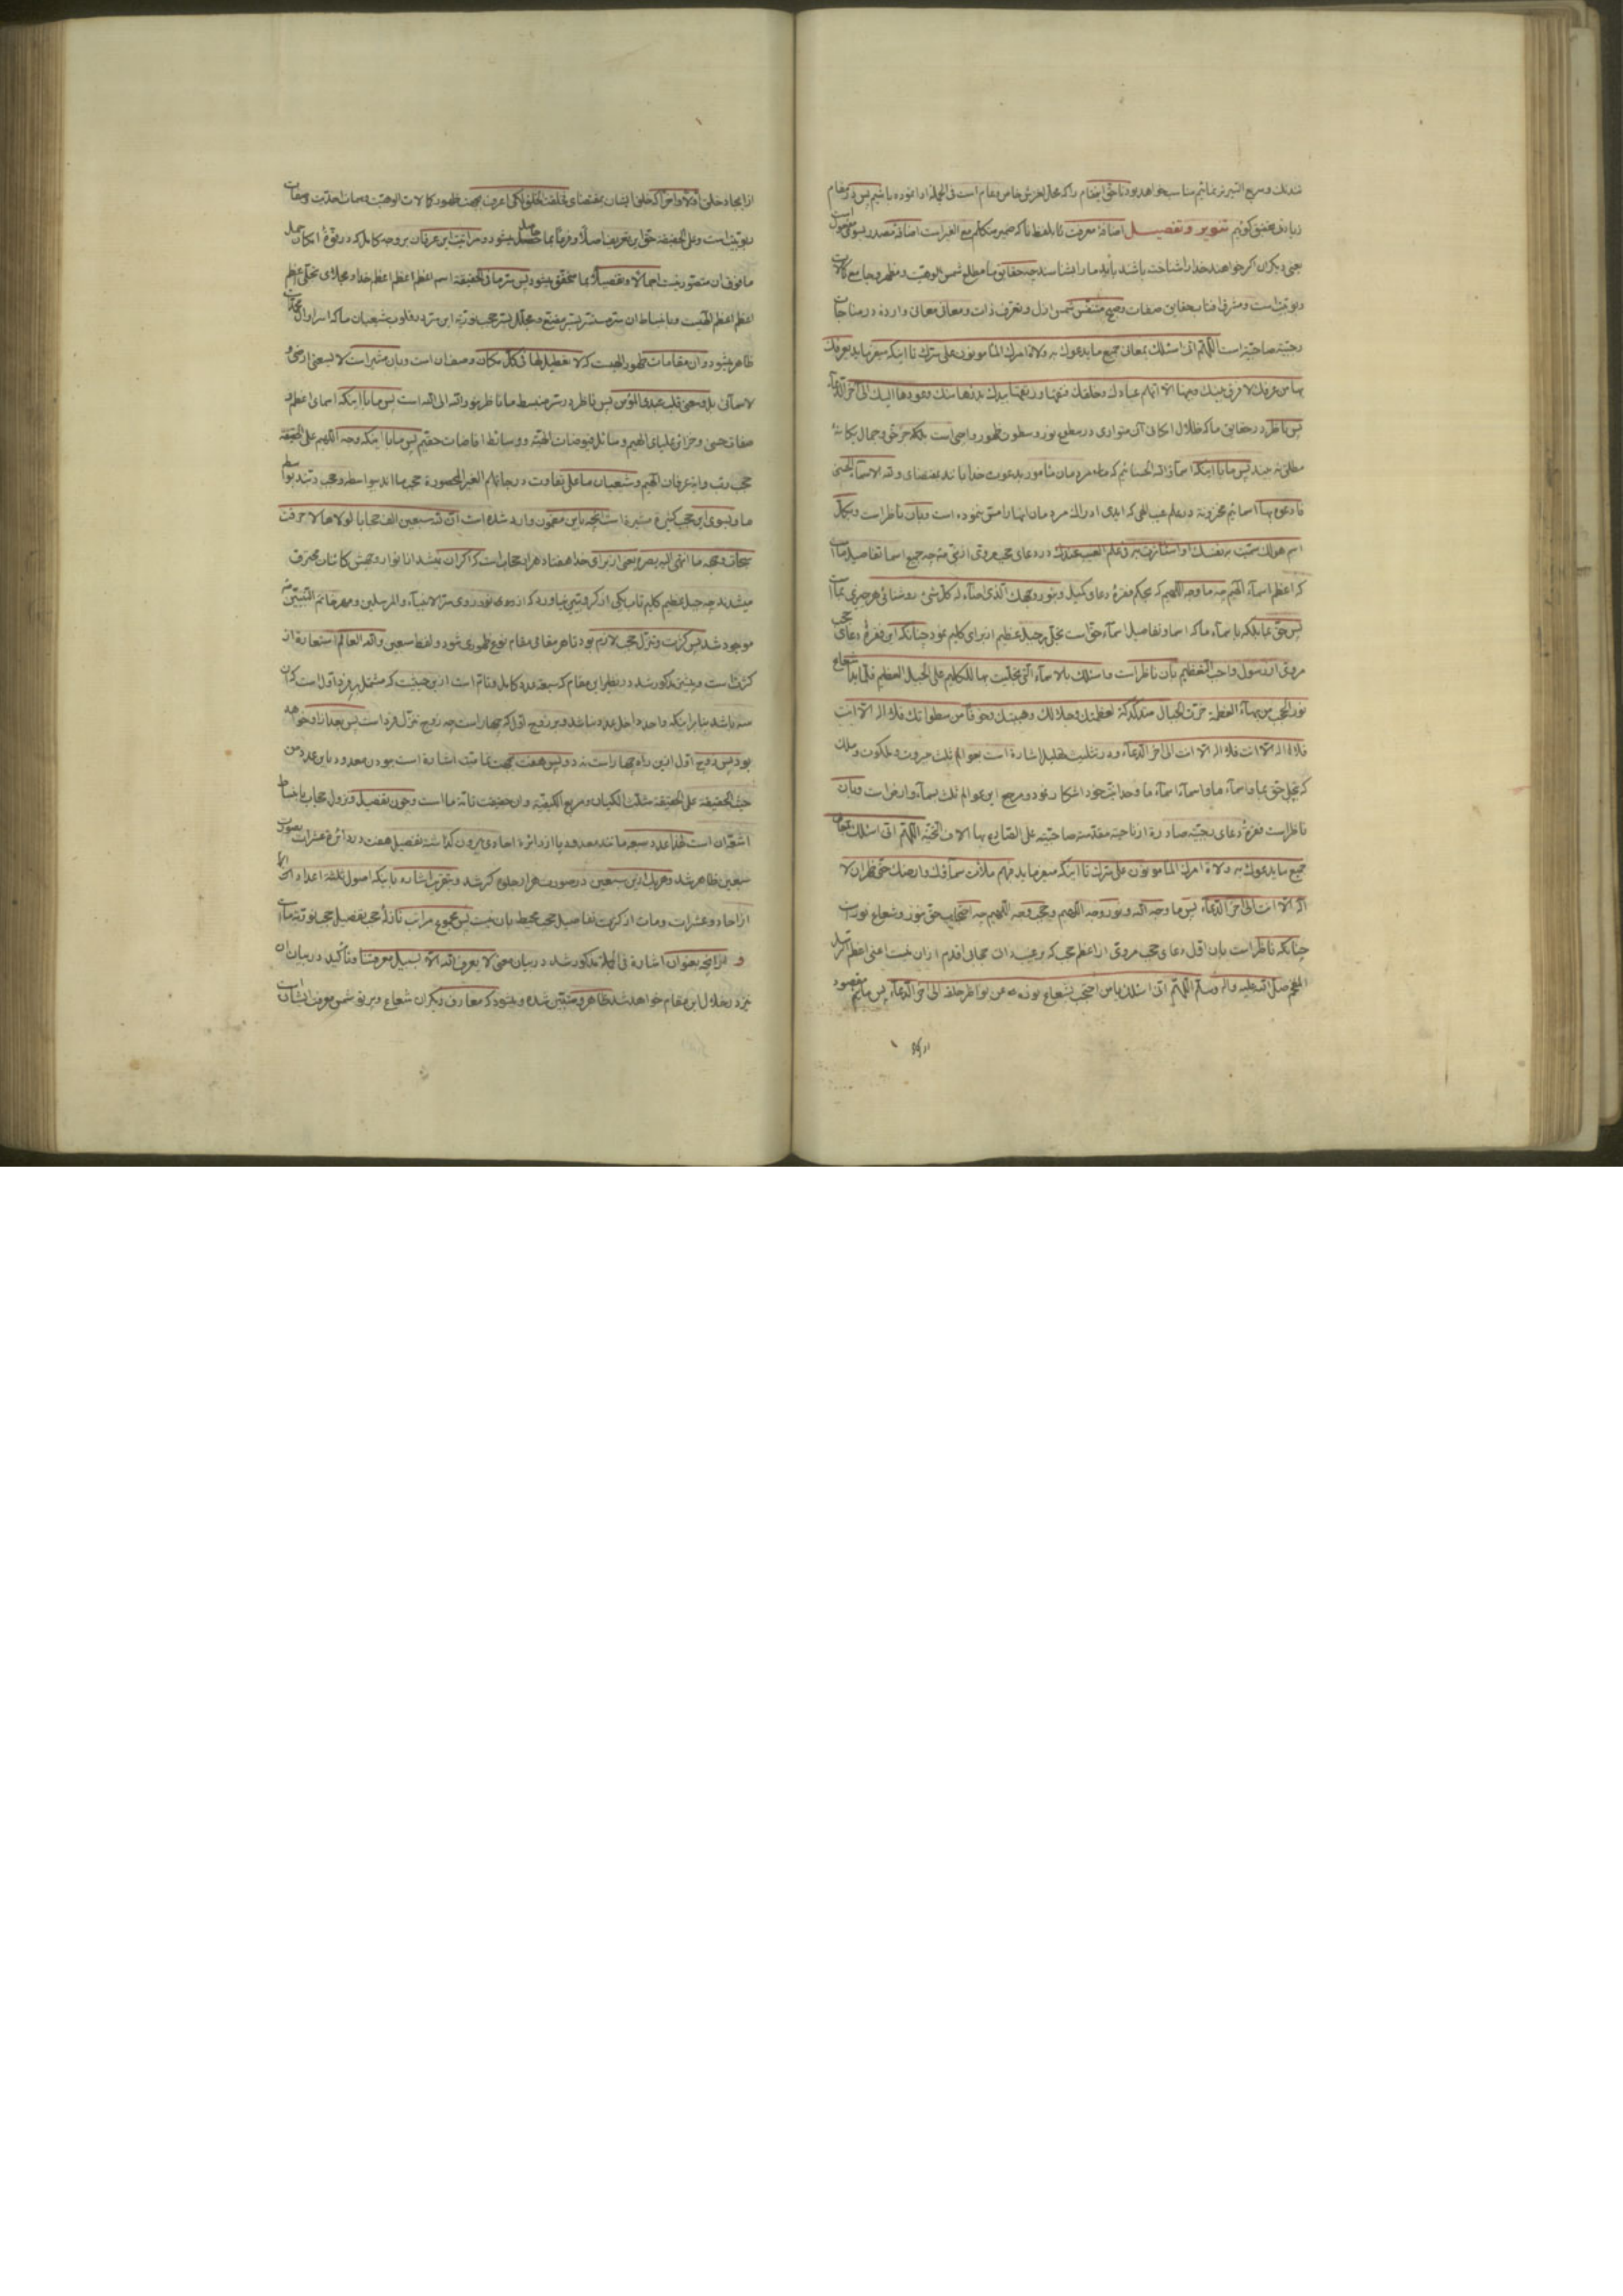 شدنك و سریع السیر نیز نمائیم مناسب خواهد بود تا حق این مقام را که محل لغزش خاص و عام است فی الجمله ادا نموده باشیم پس در مقام
زیادتی تحقیق گوئیم تنویر و تفصیل اضافهٔ معرفت بنا بلفظ نا که ضمیر متکلم مع الغیر است اضافهٔ مصدر بسوی مفعول است
یعنی دیگران اگر خواهند خدا را شناخت باشد باید ما را بشناسند چه حقایق ما مطلع شمس الوهیت و مظهر و جامع کمالات
ربوبیت است و مشرق آفتاب حقایق صفات و صبح متنفس شمس ازل و تعرف ذات و معانی معانی وارده در مناجات
رجبیه صاحبیه است اللهم انی اسئلک بمعانی جمیع ما یدعوک به ولاة امرک المأمونون علی سرک تا اینکه میفرماید یعرفک
بها من عرفک لا فرق بینک و بینها الا انهم عبادک و خلقک فتقها و رتقها بیدک بدؤها منک و عودها الیک الی آخر الدعاء
پس ناظر در حقایق ما که ظلال امکانی آن متواری در سطوع نور و سطوت ظهور واجبی است بلکه جز حق و جمال یکانهٔ
مطلق نه بیند پس مایا اینکه اسماء الله الحسنائیم که عامه مردمان مأمور بدعوت خدا بانند بمقتضای و لله الاسماء الحسنی
فادعوه بها اسمائیم مخزونه در علم غیب الهی که ایدی ادراک مردمان آنها را مس ننموده است و بان ناظر است و بکل
اسم هو لک سمیت به نفسک او استأثرت به فی علم الغیب عندک در دعای مروی از نبی چه جمیع اسما تفاصیل ما
که اعظم اسماء الهیم چه ما وجه اللهیم که بحکم فقرهٔ دعای کمیل و بنور وجهک الذی اضاء له کل شیء روشنائی هر چیزی بما
پس حق بما بلکه باسماء ما که اسما و تفاصیل اسماء حق است تجلی بر جبل عظیم از برای کلیم نمود چنانکه این فقرهٔ دعای حجب
مروی از رسول واجب التعظیم بان ناظر است و اسئلک بالاسماء التی تجلیت بها للکلیم علی الجبل العظیم فلما بدا شعاع
نور الحجب من بهاء العظمة خرت الجبال متدکدکة لعظمتک و جلالک و هیبتک و خوفا من سطوتک فلا اله الا انت
فلا اله الا انت فلا اله الا انت الی آخر الدعاء و در تثلیث تهلیل اشارة است بعوالم ثلث جبروت و ملکوت و ملک
که تجلی حق بما و اسماء ما و اسماء اسماء ما وحدانیت خود آشکار نمود و مرجع این عوالم ثلث بسماء و ارض است و بان
ناظر است فقرهٔ دعای رجبیه صادرة از ناحیه مقدسه صاحبیه علی الصادع بها الاف التحیه اللهم انی اسئلک بمعانی
جمیع ما یدعوک به ولاة امرک المأمونون علی سرک تا اینکه میفرماید فبهم ملأت سماءک و ارضک حتی ظهر ان لا
اله الا انت الی آخر الدعاء پس ما وجه الله و نور وجه اللهیم و حجب وجه اللهیم چه احتجاب حق بنور و شعاع نور است
چنانکه ناظر است بان اول دعای حجب مروی از اعظم حجب که رعبیدان حجابی اقدم از آن نیست اعنی اعظم الرسل
الفخم صلی الله علیه واله وسلم اللهم انی اسئلک یا من احتجب بشعاع نوره عن نواظر خلقه الی آخر الدعاء پس مائیم مقصود
از ایجاد
از ایجاد خلق اولا و آخرا که خلق ایشان بمقتضای فخلقت الخلق لکی اعرف بجهت ظهور کمالات الوهیت و سمات احدیت و صفات
ربوبیت است و علی الحقیقه حق این تعریف اصلا و فرعا بما حاصل میشود و مراتب این عرفان بر وجه کامل که در قوهٔ امکان
ما فوق آن متصور نیست اجمالا و تفصیلا بما متحقق میشود پس سر ما فی الحقیقه اسم اعظم اعظم اعظم خدا و مجلای تجلی اعظم
اعظم اعظم الهیست و بانبساط آن سر مستتر بسر مقنع و مجلل بسر حجب نوریه این سر در قلوب شیعیان ما که اسرار آن
ظاهر میشود و آن مقامات ظهور الهیست که لا تعطیل لها فی کل مکان وصف آن است و بان مشیر است لا یسعنی ارضی و
لا سمائی بل وسعنی قلب عبدی المؤمن پس ناظر در سر منبسط ما ناظر بنور الله الی الله است پس مایا اینکه اسمای اعظم و
صفات حسنی و خزائن علیای الهیم و سائل فیوضات الهیه و وسائط افاضات حقیم پس مایا اینکه وجه اللهیم علی الحقیقه
حجب رب و ابة عرفان الهیم و شیعیان ما علی تفاوت درجاتهم الغیر المحصورة حجب ما اند بواسطه و حجب ربند بواسطه
ما و بسوی این حجب کثیرة مشیرة است آنچه باین مضمون وارد شده است ان لله سبعین الف حجابا لولاها لاحرقت
سبحات وجهه ما انتهی الیه بصره یعنی از برای خدا هفتاد هزار حجاب است که اگر آن نمیشد انا انوار وجهش کائنات محترق
میشدند چه جبل عظیم کلیم تاب یکی از کروبیین نیاورد که از دوی نور روی سر الانبیاء و المرسلین و مهر خاتم النبیین منه
موجود شد پس کثرت و تنزل حجب لازم بود تا هر مقامی مقام نوع ظهوری شود و لفظ سبعین و الله العالم استعارة از
کثرت است و پیش مذکور شد در نظیر این مقام که سبعه عدد کامل و تام است از این حیثیت که مشتمل بر فرد اول است که آن
سه باشد بنا بر اینکه واحد داخل عدد نباشد و بر زوج اول که چهار است چه زوج تنزل فرد است پس بعد از او خواهد
بود پس زوج اول از این راه چهار است نه دو پس هفت بجهت تمامیت اشارة است بودن معدود باین عدد من
حیث الحقیقه علی الحقیقه مثلث الکیان و مربع الکیفیه و آن حقیقت تامهٔ ما است و چون تفصیل و نزول حجاب بانبساط
اشعهٔ آن است لهذا عدد سبعه مانند معدود پا از دائرهٔ احادی بیرون گذاشته تفصیل هفت در دائرهٔ عشرات بصورت
سبعین ظاهر شد و هر یک از این سبعین در صورت هزار جلوه گر شد و بتقریب اشاره باینکه اصول ثلثه اعداد الی
از احاد و عشرات و مات از کثرت تفاصیل حجب محیط بان نیست پس مجموع مراتب نازلهٔ حجب تفصیل حجب نوریهٔ ما است
و از آنچه بعنوان اشارة فی الجمله مذکور شد در بیان معنی لا یعرف الله الا بسبیل معرفتنا و تأکید در بیان آن
نیز در خلال این مقام خواهد شد ظاهر و متبین شده و میشود که معارف دیگران شعاع و پرتو شمس معرفت ایشان است